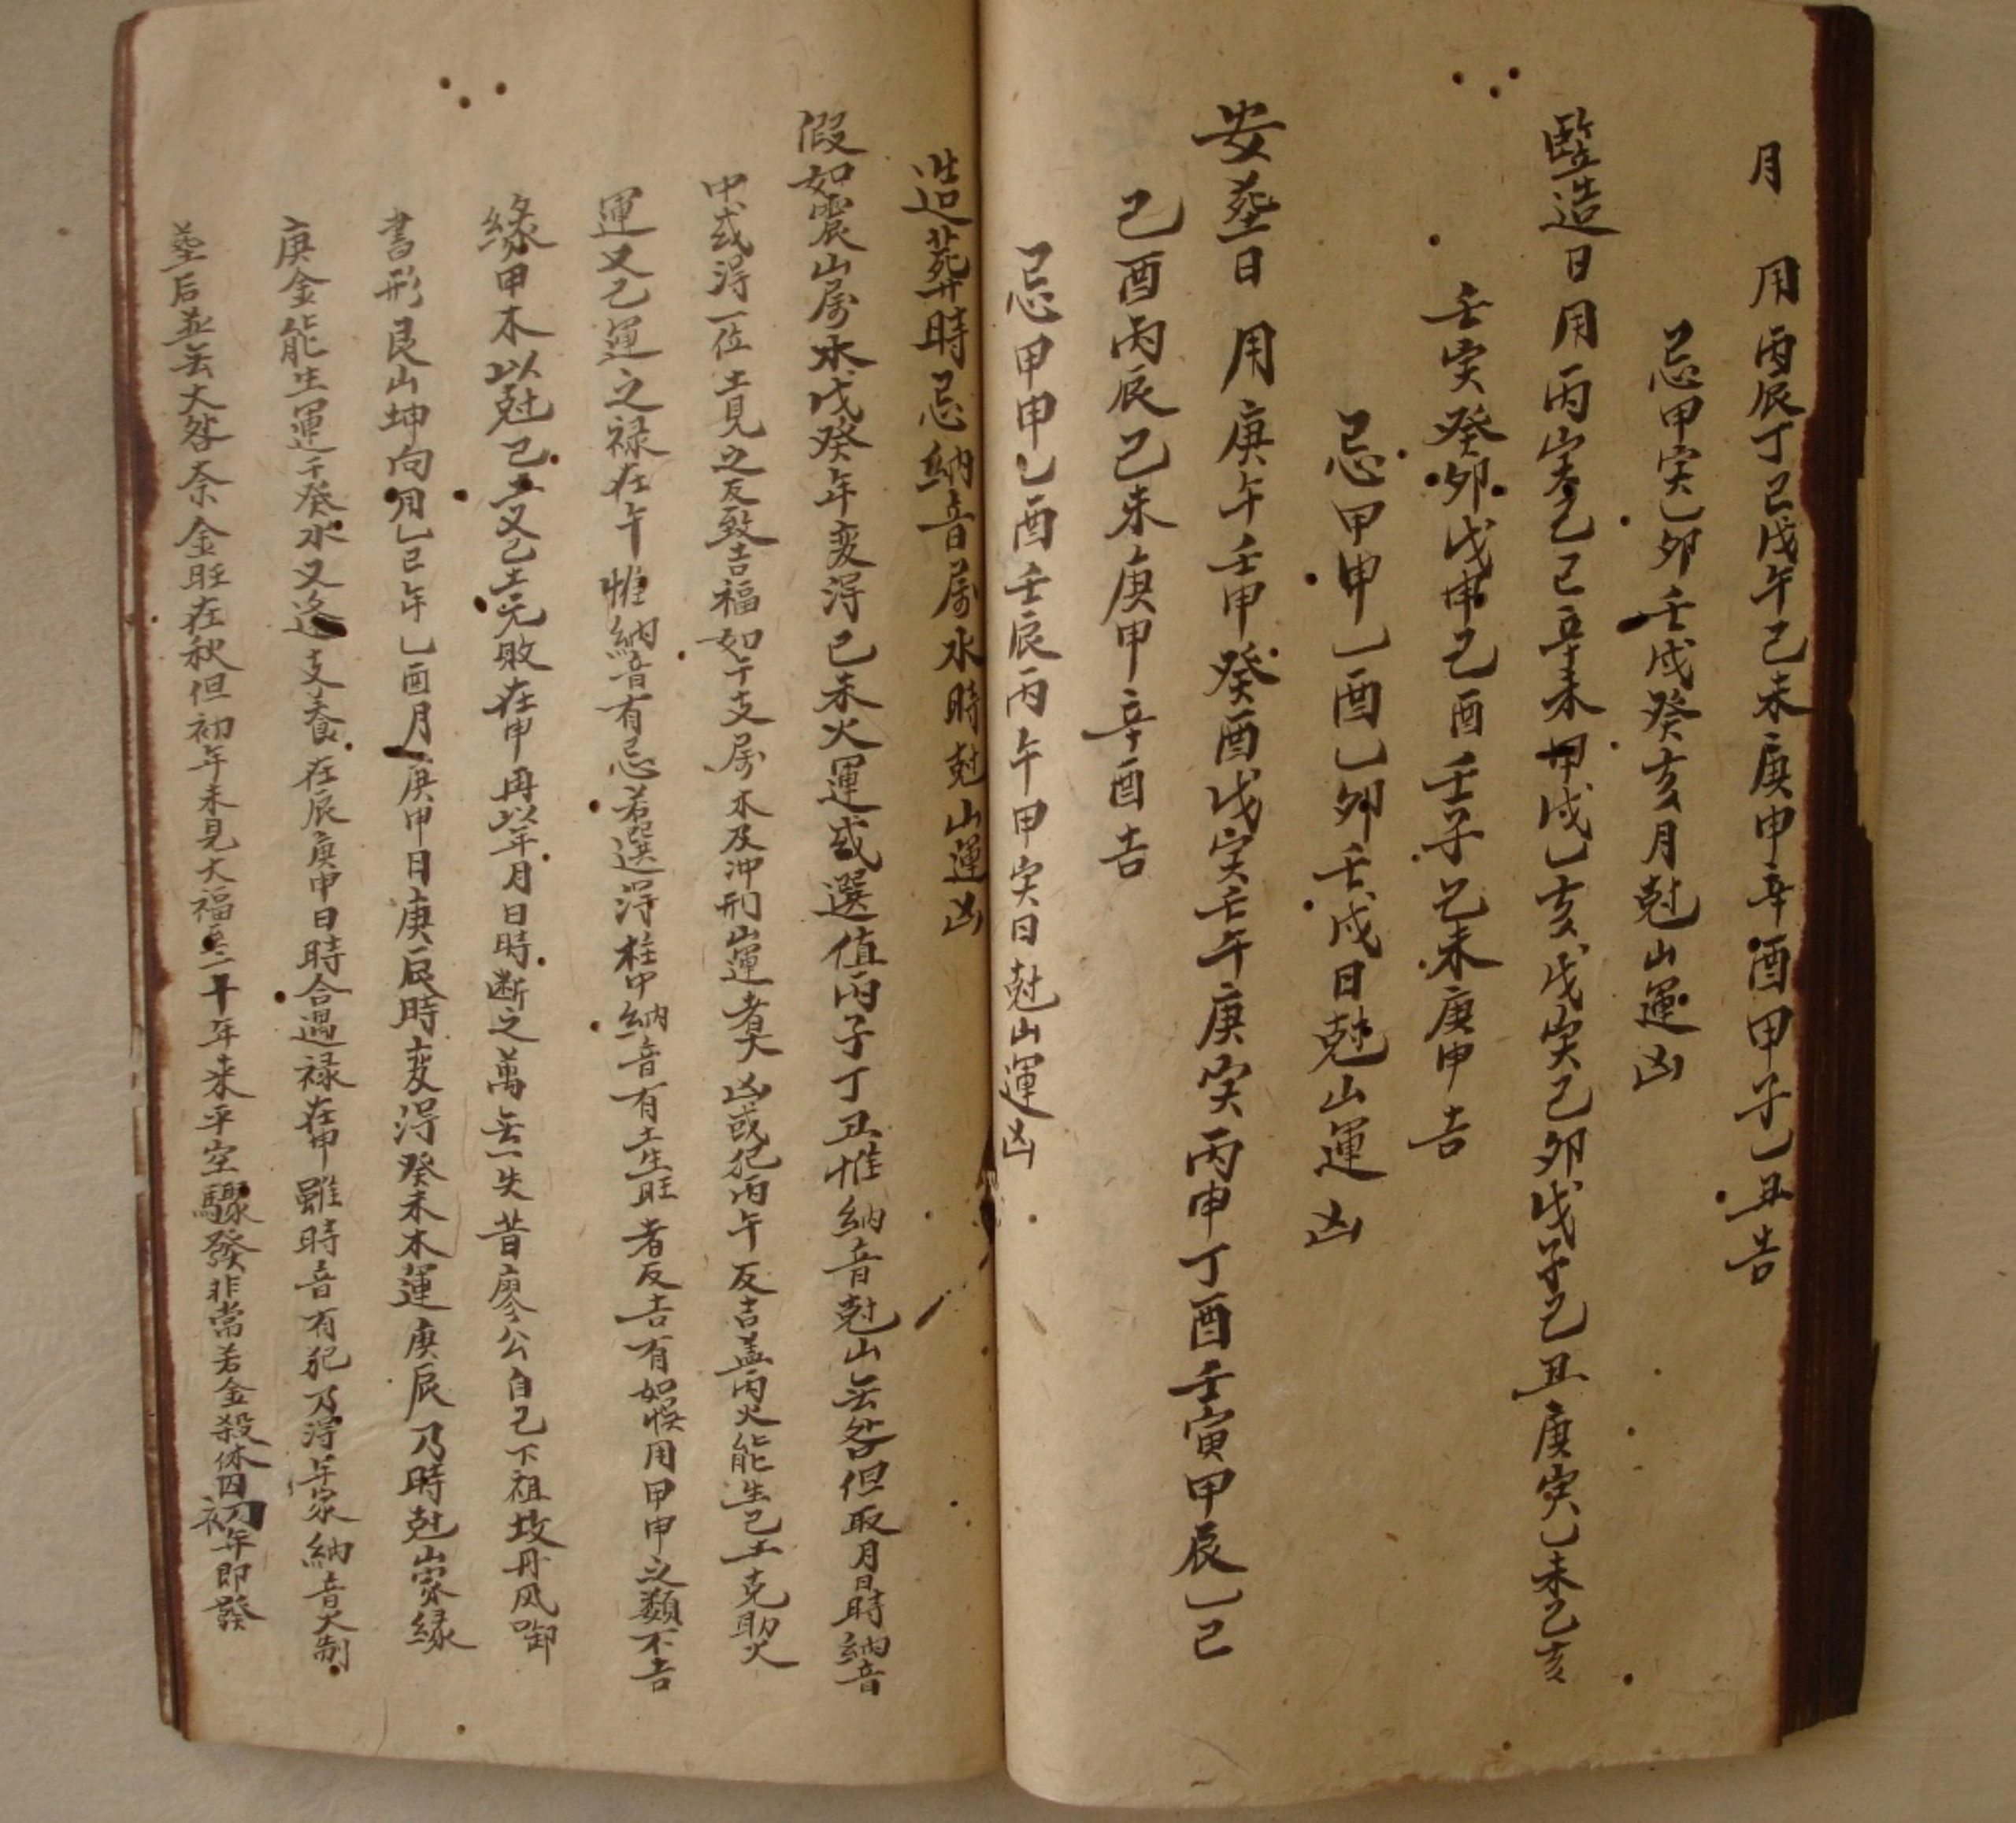 月 用丙辰丁巳戊午己未庚申辛酉甲子乙丑吉
忌甲寅乙卯壬戌癸亥月尅山運凶
竪造日用丙寅己巳辛未甲戌乙亥戊寅己卯戊子己丑庚寅乙未己亥
壬寅癸卯戊申己酉壬子己未庚申吉
忌甲申乙酉乙卯壬戌日尅山運凶
安葬日用庚午壬申癸酉戊寅壬午庚寅丙申丁酉壬寅甲辰乙巳
己酉丙辰己未庚申辛酉吉
忌甲申乙酉壬辰丙午甲寅日尅山運凶
造葬時忌納音屬水時尅山運凶
假如震山屬水戊癸年变得己未火運或選值丙子丁丑惟納音尅山無咎但取月日時納音
中或得一位土見之反致吉福如干支屬木及冲刑山運者大凶或犯丙午反吉盖丙火能生己土克助火
運又己運之禄在午惟納音有忌若選得柱中納音有土生旺者反吉有如悮用甲申之類不吉
緣甲木以尅己土又己土元敗在申再以年月日時断之萬無一失昔廖公自己下祖坟丹凤啣
書形艮山坤向用乙巳年乙酉月庚申日庚辰時变得癸未木運庚辰乃時尅山家緣
庚金能生運干癸水又逢支養在辰庚申日時合遇禄在申雖時音有犯乃得年家納音火制
葬后並無大咎奈金旺在秋但初年未見大福至二十年來平空驟發非常若金殺休囚初年即發